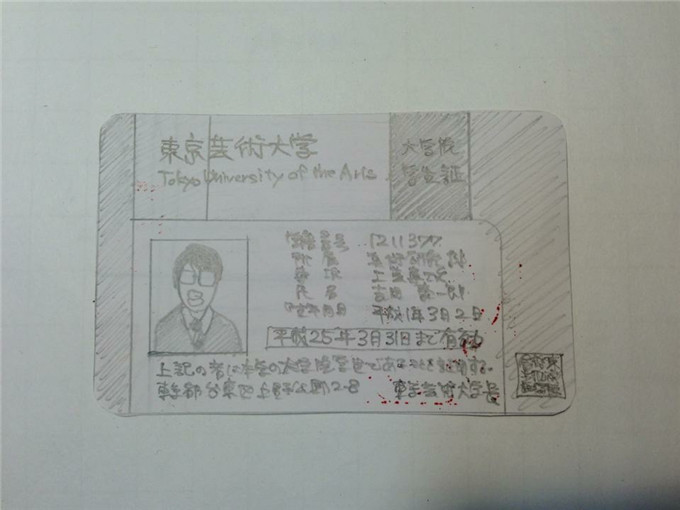 東京芸術大学
Tokyo University of the Arts
大学院
学生証
番号 1211377
所属
専攻 工芸専攻
氏名 吉田 一郎
生年月日 平成1年3月2日
平成25年3月31日まで有効
上記の者は本学の大学院学生であることを証明する。
東京都台東区上野公園12-8
東京芸術大学長